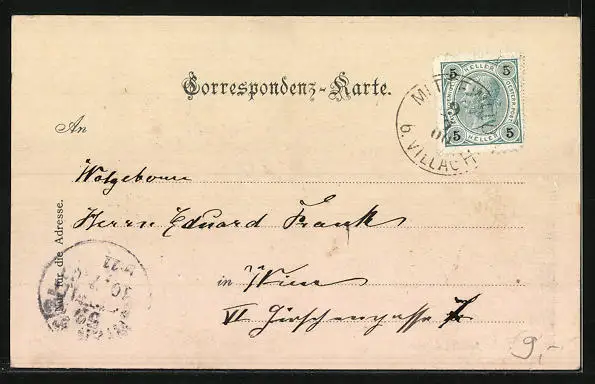 Correspondenz-Karte.
5 HELLER 5
5 HELLER 5
b. VILLACH
An
Wolgeboren
Herrn Eduard Frank
in Wien
VI Hirschengasse 7
Nur für die Adresse.
9,-